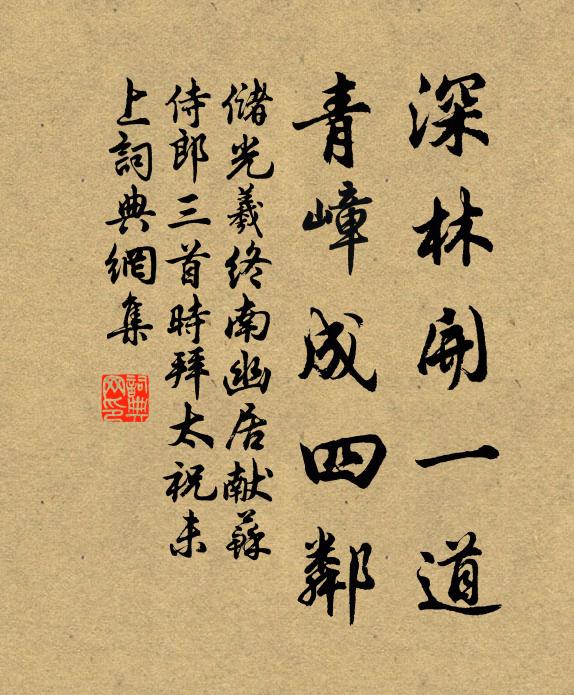 深林開一道
青嶂成四鄰
儲光羲終南幽居献蘇
侍郎三首時拜太祝未
上詞典網集
詞典
网印